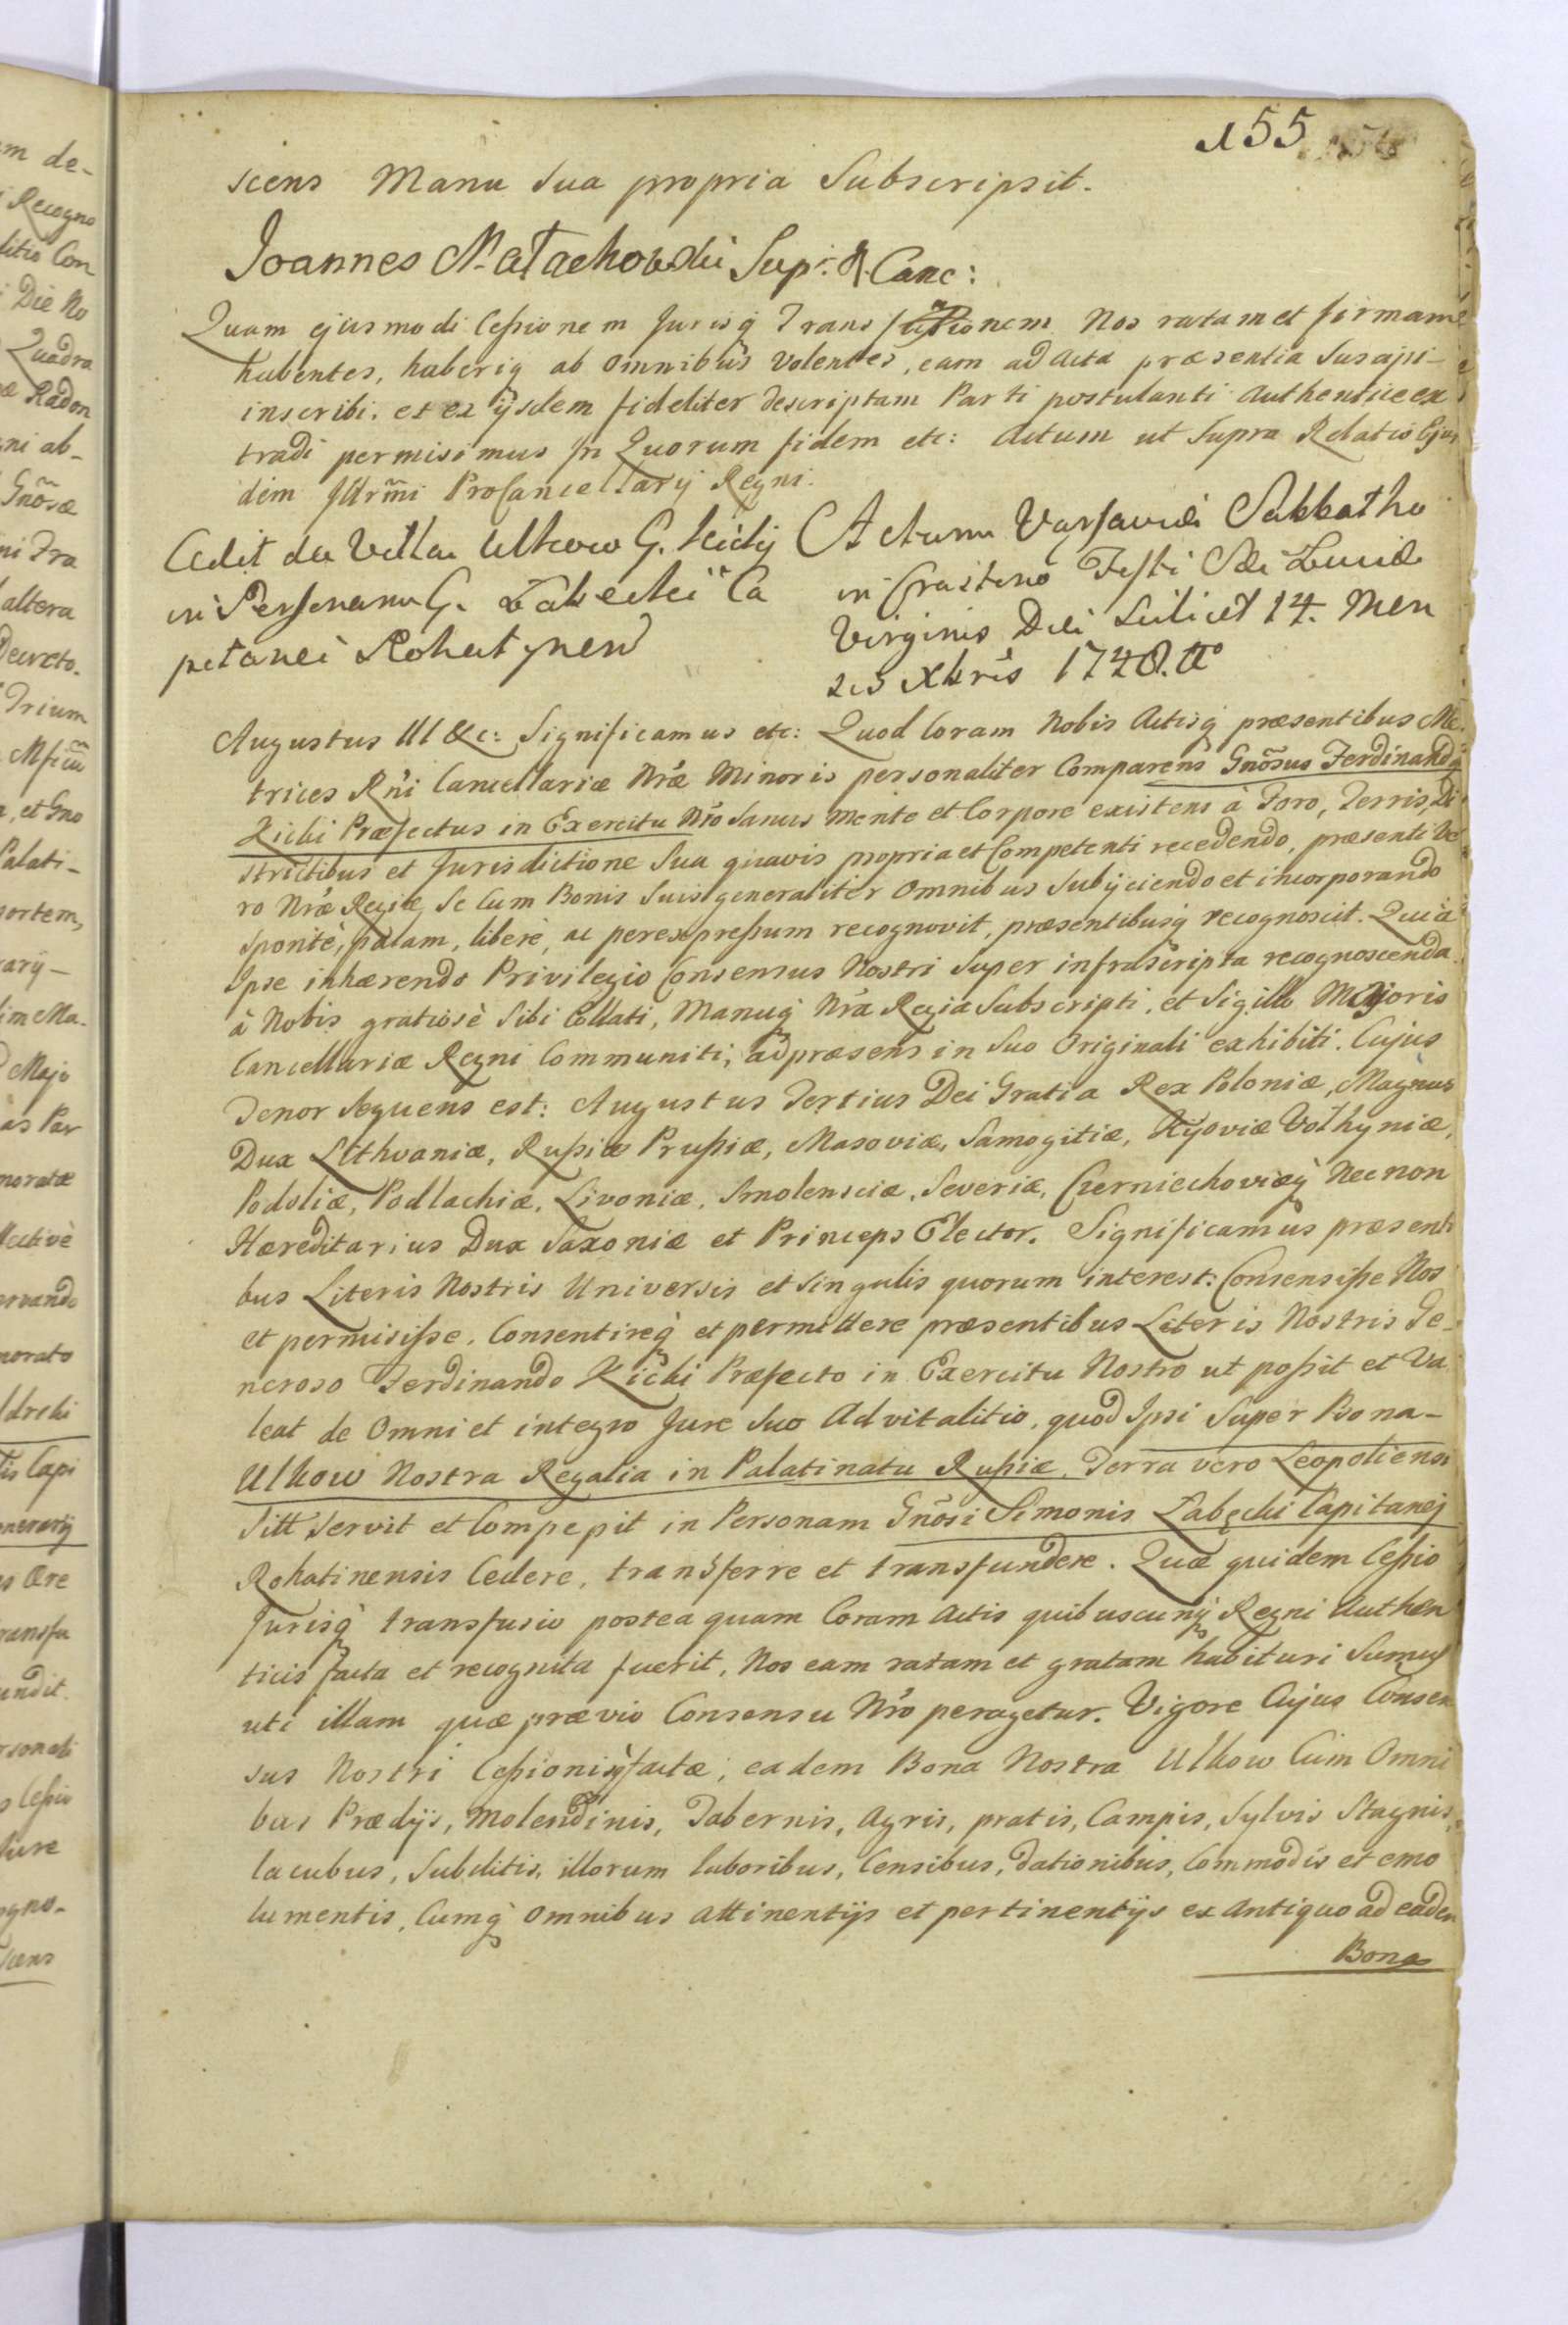 155
scens Manu Sua propria Subscripsit.
Joannes Małachowski Sup: R. Canc:
Quam ejusmodi Cessionem Jurisq̀ Trans Nos ratam et firmam
habentes, haberiq ab omnibus Volentes, eam ad Acta præsentia Suscipi
inscribi, et ex ijsdem fideliter descriptam Parti postulanti Authentice ex
tradi permisimus In Quorum fidem etc: Actum ut Supra Relatio Ejus
dem Illr̃mi ProCancellarij Regni.
Cedit de Villa Ulkow G. Kicki
in Personam G. Łabecki Ca
pitanei Rohatynen
Actum Varsaviæ Sabbatho
in Crastino Festi Sæ Luciæ
Virginis Diei Scilicet 14. Men
sis Xbris 1748. Aº
Augustus III &c: Significamus etc: Quod Coram Nobis Actisq̀ præsentibus Me
trices Rńi Cancellariæ Nræ Minoris personaliter Comparens Gnõsus Ferdinandq̀
Kicki Præfectus in Exercitu Nr̃o Sanus mente et Corpore existens à Foro, Terris, Di
strictibus et Jurisdictione Sua quavis propria et Competenti recedendo, præsenti Ve
ro Nræ Regiæ Se Cum Bonis Suis generaliter Omnibus Subijciendo et incorporando
Sponte, palam, libere, ac per expressum recognovit, præsentibusq̀ recognoscit. Quia
Ipse inhærendo Privilegio Consensus Nostri Super infrascripta recognoscenda
à Nobis gratiosè Sibi Collati, Manuq̀ Nrá Regia Subscripti, et Sigillo Majoris
Cancellariæ Regni Communiti, ad præsens in Suo Originali exhibiti. Cujus
Tenor Sequens est: Augustus Tertius Dei Gratia Rex Poloniæ, Magnus
Dux Lithvaniæ, Russiæ Prussiæ, Masoviæ, Samogitiæ, Kijoviæ Volhyniæ,
Podoliæ, Podlachiæ, Livoniæ, Smolensciæ, Severiæ, Czerniechoviæq̀ Necnon
Hæreditarius Dux Saxoniæ et Princeps Elector. Significamus præsenti
bus Literis Nostris Universis et Singulis quorum interest: Consensisse Nos
et permisisse, Consentireq̀ et permittere præsentibus Literis Nostris Ge-
neroso Ferdinando Kicki Præfecto in Exercitu Nostro ut possit et Va
leat de Omni et integro Jure Suo Advitalitio, quod Ipsi Super Bona-
Ulkow Nostra Regalia in Palatinatu Russiæ, Terra vero Leopoliensi
Sitt Servit et Compepit in Personam Gnõsi Simonis Łabęcki Capitanej
Rohatinensis Cedere, transferre et transfundere. Quæ quidem Cessio
Jurisq̀ transfusio postea quam Coram Actis quibuscunq̀ Regni Authen
ticis facta et recognita fuerit, Nos eam ratam et gratam habituri Sumus
uti illam quæ prævio Consensu Nr̃o peragetur. Vigore Cujus Consen
sus Nostri Cessionisq̀ factæ, eadem Bona Nostra Ulkow Cum Omni
bus Prædijs, Molendinis, Tabernis, Agris, pratis, Campis, Sylvis Stagnis,
lacubus, Subditis, illorum laboribus, Censibus, dationibus, Commodis et emo
lumentis, Cumq̀ Omnibus attinentijs et pertinentijs ex Antiquo ad eadem
Bona